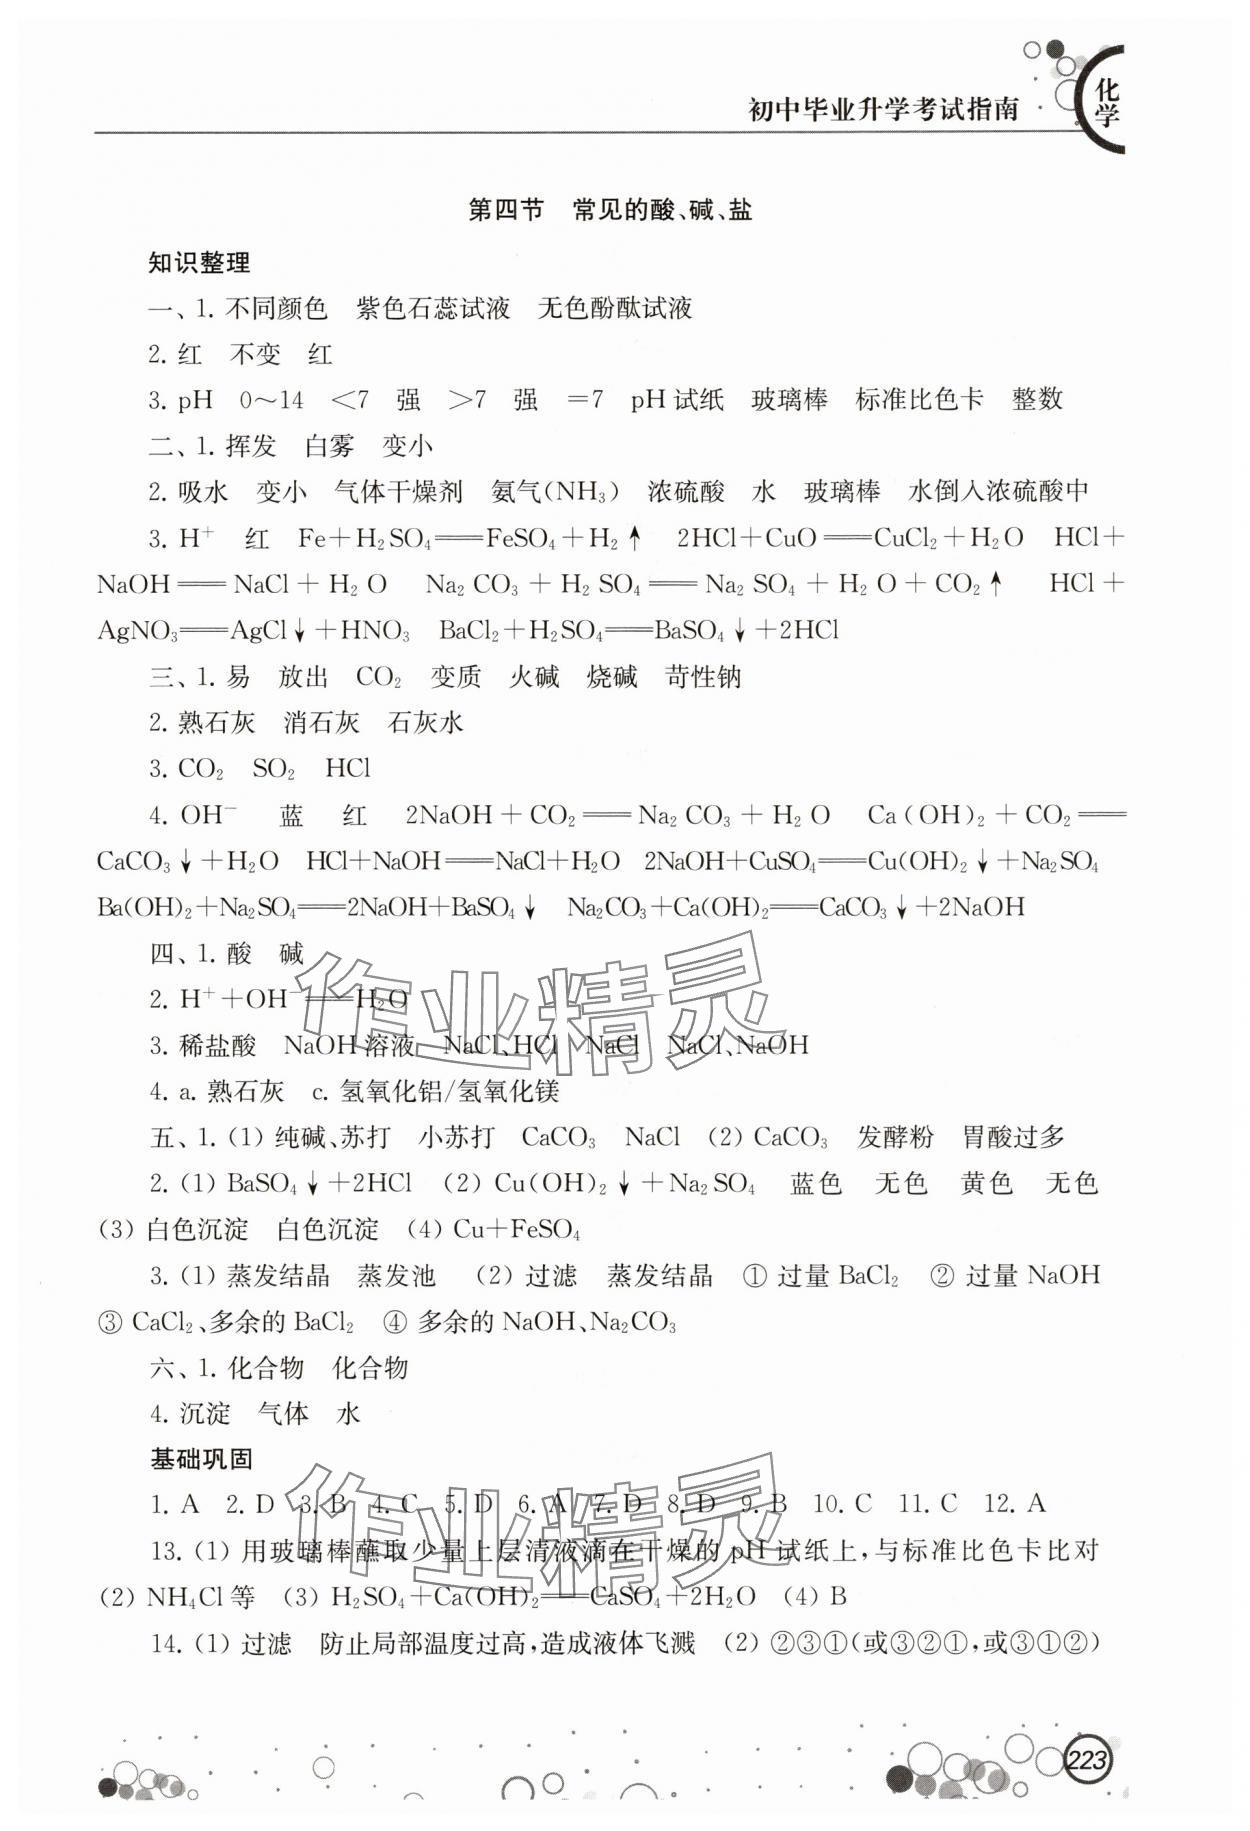 初中毕业升学考试指南
化学
第四节　常见的酸、碱、盐
知识整理
一、1. 不同颜色　紫色石蕊试液　无色酚酞试液
2. 红　不变　红
3. pH　0～14　<7　强　>7　强　=7　pH试纸　玻璃棒　标准比色卡　整数
二、1. 挥发　白雾　变小
2. 吸水　变小　气体干燥剂　氨气(NH₃)　浓硫酸　水　玻璃棒　水倒入浓硫酸中
3. H⁺　红　Fe+H₂SO₄══FeSO₄+H₂↑　2HCl+CuO══CuCl₂+H₂O　HCl+
NaOH══NaCl+H₂O　Na₂CO₃+H₂SO₄══Na₂SO₄+H₂O+CO₂↑　HCl+
AgNO₃══AgCl↓+HNO₃　BaCl₂+H₂SO₄══BaSO₄↓+2HCl
三、1. 易　放出　CO₂　变质　火碱　烧碱　苛性钠
2. 熟石灰　消石灰　石灰水
3. CO₂　SO₂　HCl
4. OH⁻　蓝　红　2NaOH+CO₂══Na₂CO₃+H₂O　Ca(OH)₂+CO₂══
CaCO₃↓+H₂O　HCl+NaOH══NaCl+H₂O　2NaOH+CuSO₄══Cu(OH)₂↓+Na₂SO₄
Ba(OH)₂+Na₂SO₄══2NaOH+BaSO₄↓　Na₂CO₃+Ca(OH)₂══CaCO₃↓+2NaOH
四、1. 酸　碱
2. H⁺+OH⁻══H₂O
3. 稀盐酸　NaOH溶液　NaCl、HCl　NaCl　NaCl、NaOH
4. a. 熟石灰　c. 氢氧化铝/氢氧化镁
五、1. (1) 纯碱、苏打　小苏打　CaCO₃　NaCl　(2) CaCO₃　发酵粉　胃酸过多
2. (1) BaSO₄↓+2HCl　(2) Cu(OH)₂↓+Na₂SO₄　蓝色　无色　黄色　无色
(3) 白色沉淀　白色沉淀　(4) Cu+FeSO₄
3. (1) 蒸发结晶　蒸发池　(2) 过滤　蒸发结晶　① 过量BaCl₂　② 过量NaOH
③ CaCl₂、多余的BaCl₂　④ 多余的NaOH、Na₂CO₃
六、1. 化合物　化合物
4. 沉淀　气体　水
基础巩固
1. A　2. D　3. B　4. C　5. D　6. A　7. D　8. D　9. B　10. C　11. C　12. A
13. (1) 用玻璃棒蘸取少量上层清液滴在干燥的pH试纸上，与标准比色卡比对
(2) NH₄Cl等　(3) H₂SO₄+Ca(OH)₂══CaSO₄+2H₂O　(4) B
14. (1) 过滤　防止局部温度过高，造成液体飞溅　(2) ②③①(或③②①，或③①②)
223
作业精灵
作业精灵